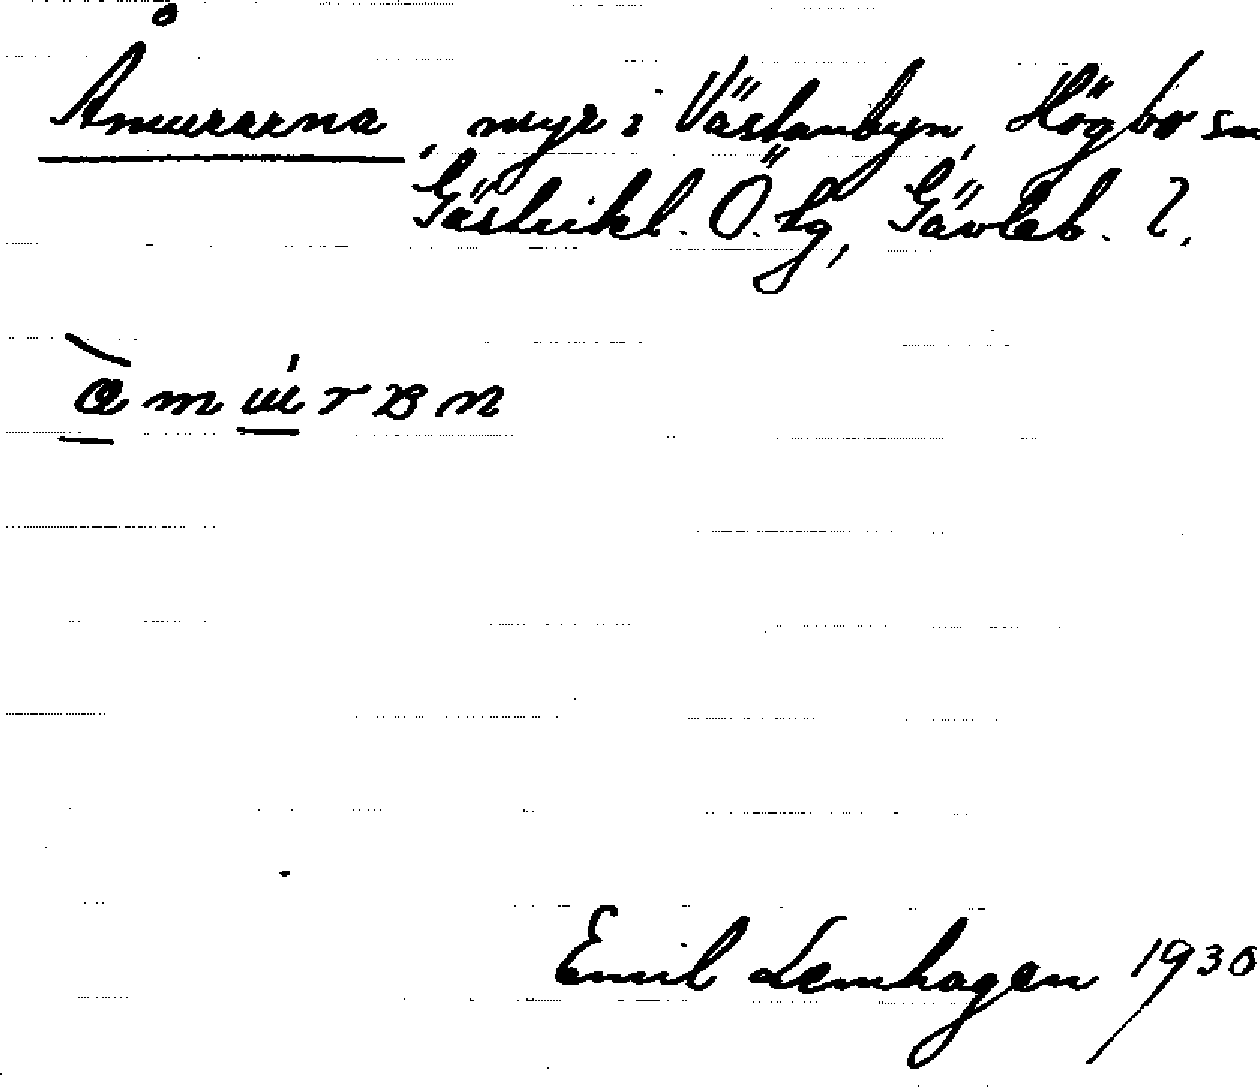 Åmurarna myr i Västanbyn, Högbo sn
Gästrikl. Ö. tg, Gävleb. l.
Emil Lemhagen 1930